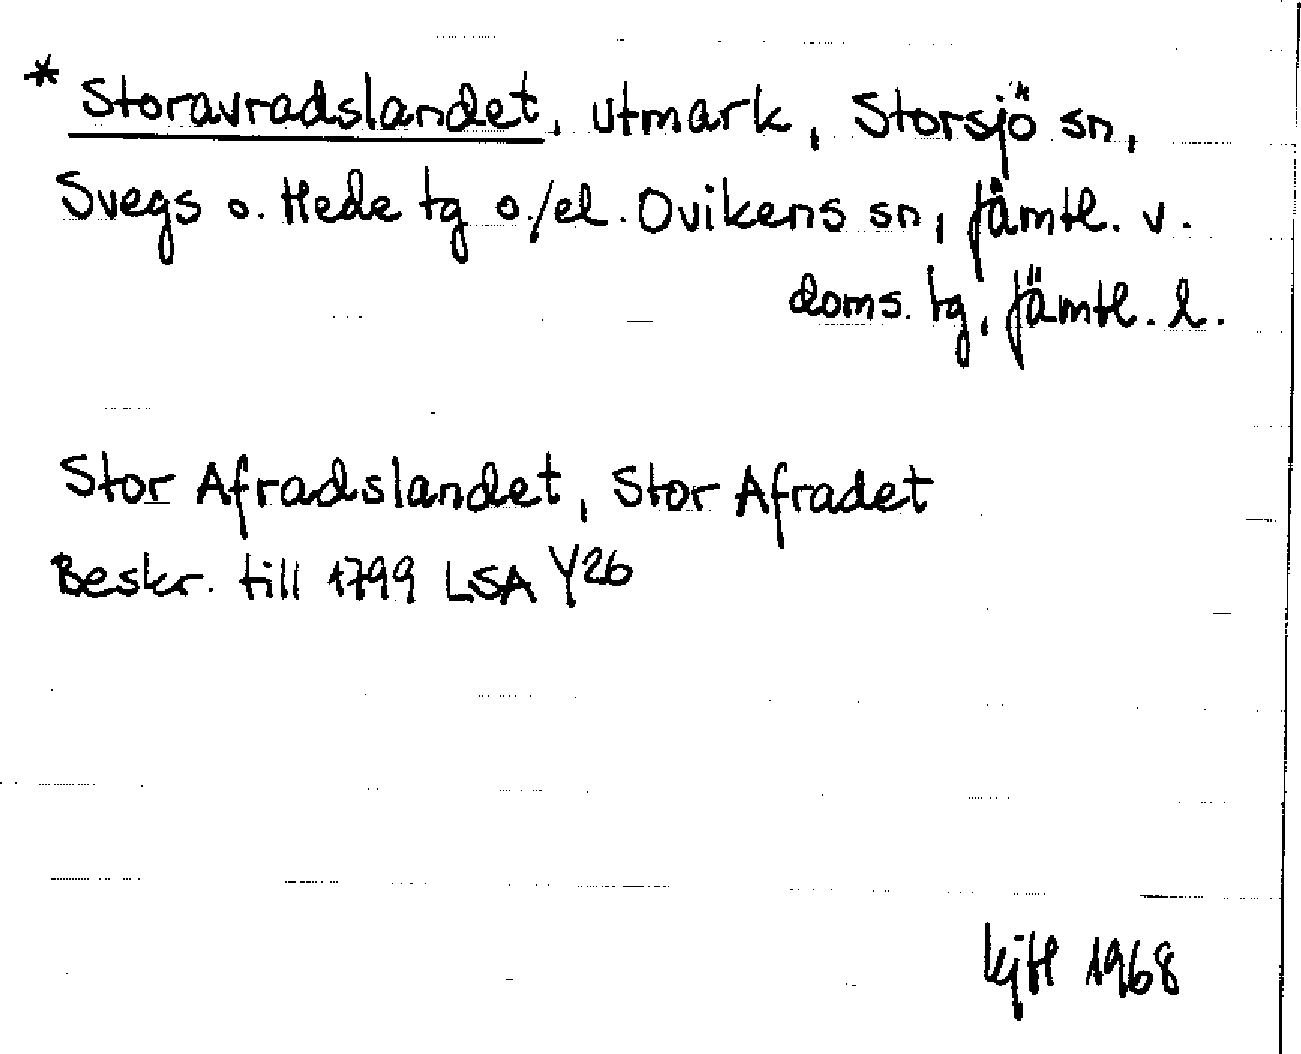 * Storavradslandet, utmark, Storsjö sn,
Svegs o. Hede tg o./el. Ovikens sn, Jämtl. v.
doms. tg, Jämtl. l.
Stor Afradslandet, Stor Afradet
Beskr. till 1799 LSA Y26
KJH 1968